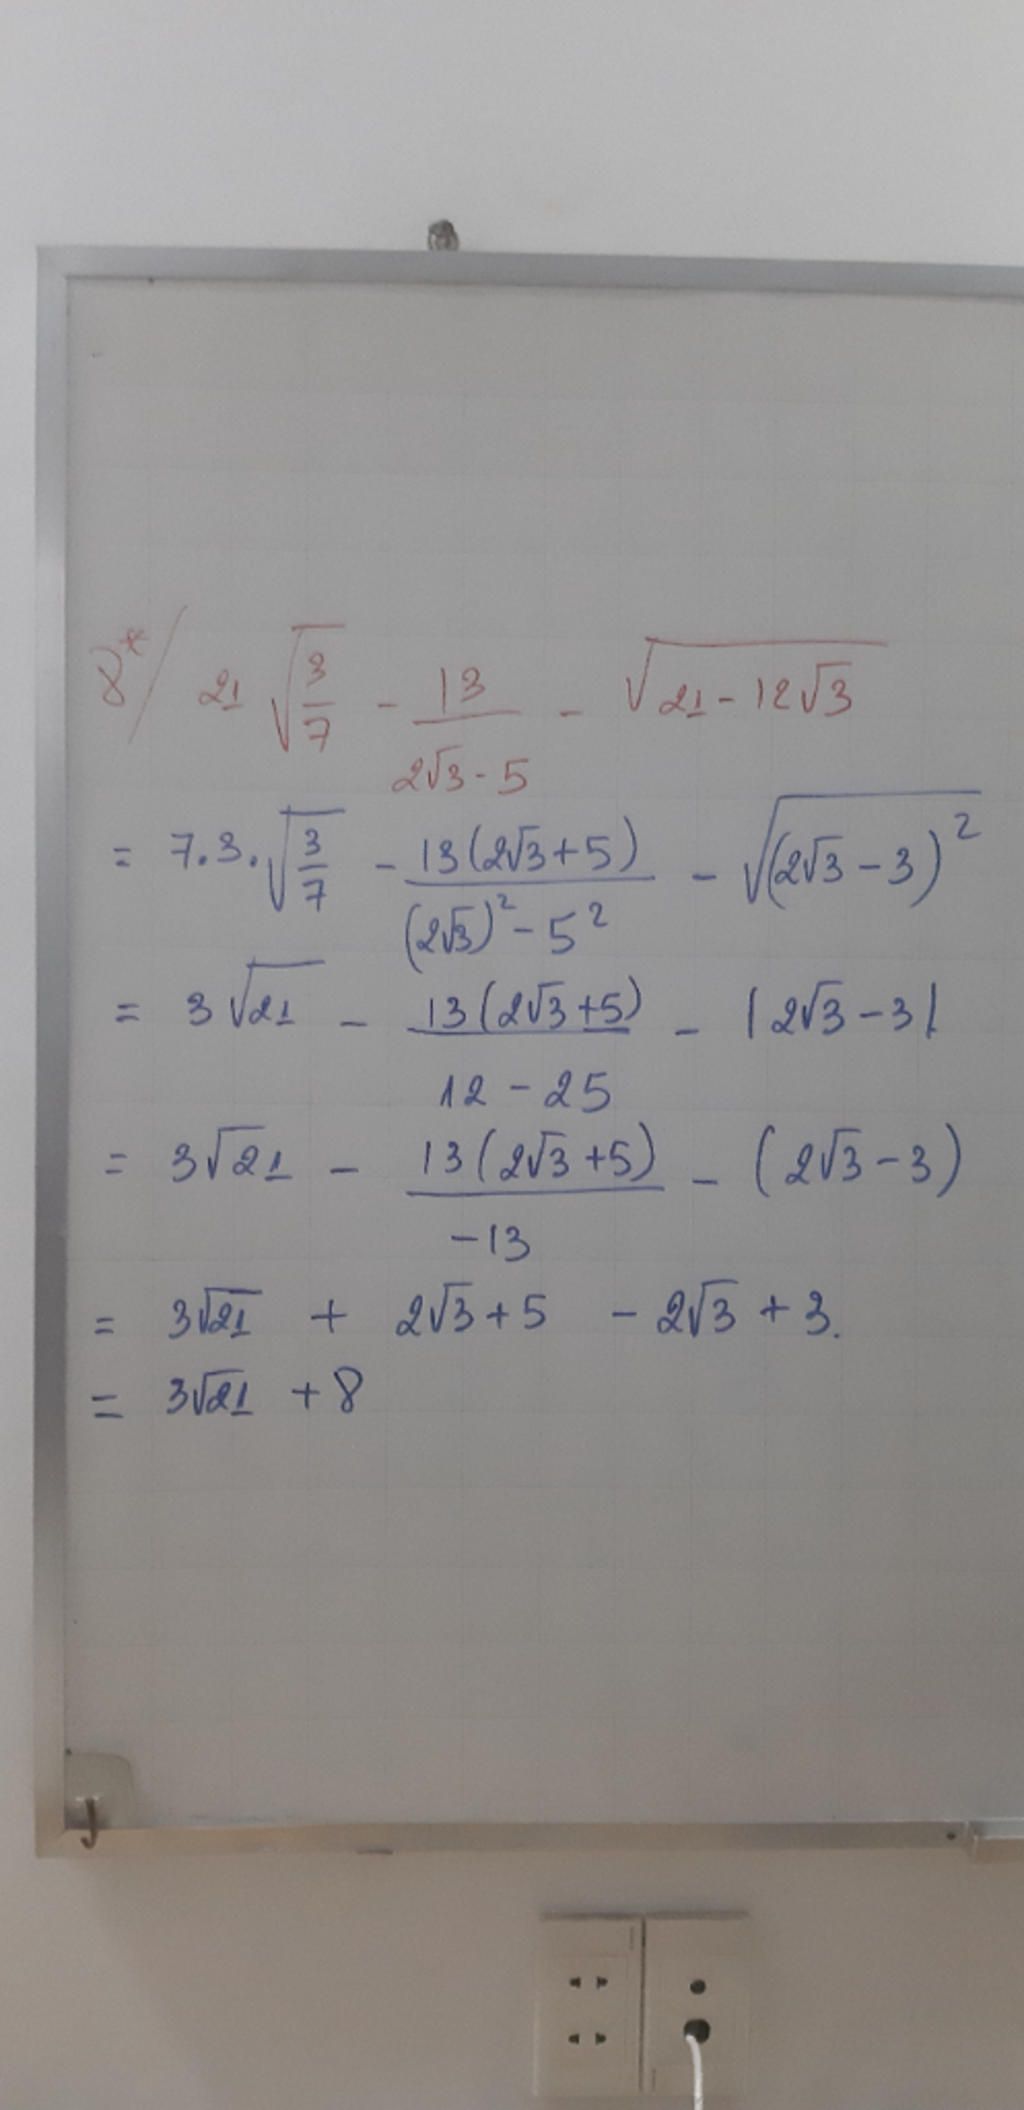 8*/ 21 √(3/7) - 13/(2√3 - 5) - √(21 - 12√3)
= 7.3.√(3/7) - 13(2√3+5)/((2√3)² - 5²) - √((2√3 - 3)²)
= 3√21 - 13(2√3+5)/(12 - 25) - |2√3 - 3|
= 3√21 - 13(2√3+5)/(-13) - (2√3 - 3)
= 3√21 + 2√3 + 5 - 2√3 + 3.
= 3√21 + 8